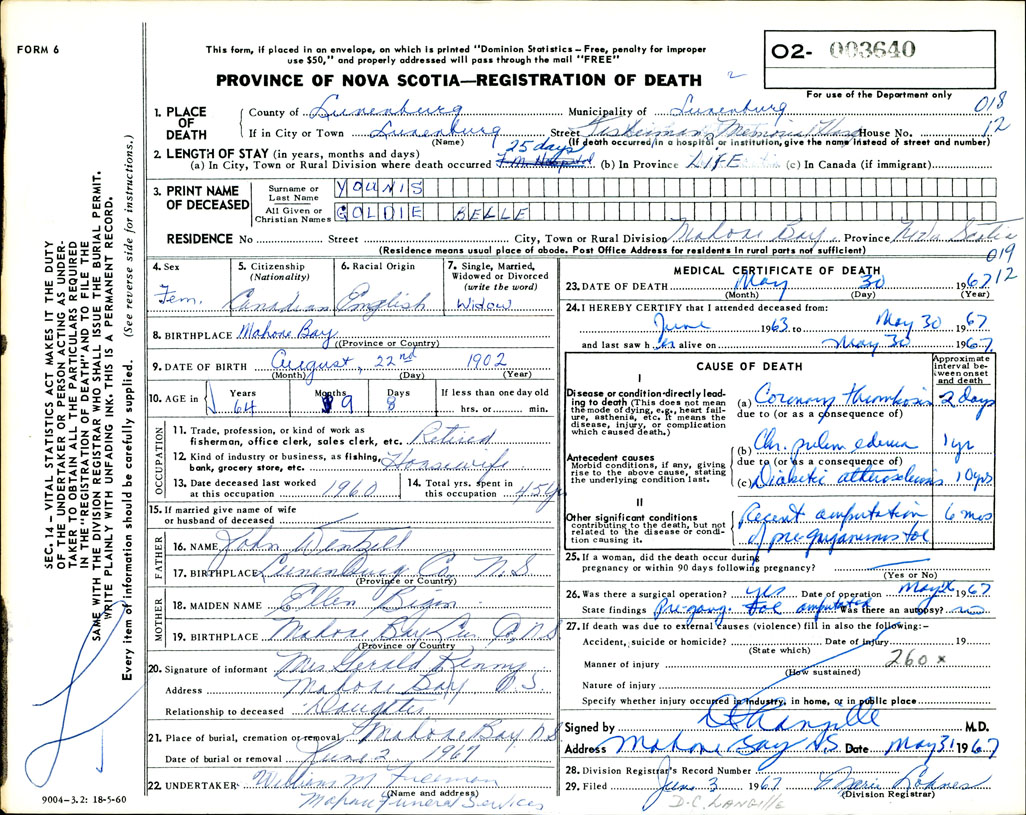 FORM 6
This form, if placed in an envelope, on which is printed "Dominion Statistics – Free, penalty for improper
use $50," and properly addressed will pass through the mail "FREE"
PROVINCE OF NOVA SCOTIA—REGISTRATION OF DEATH
02- 003640
For use of the Department only
018
12
1. PLACE OF DEATH
County of Lunenburg Municipality of Lunenburg
If in City or Town Lunenburg Street Fisherman's Memorial Hosp House No.
(Name) (If death occurred in a hospital or institution, give the name instead of street and number)
2. LENGTH OF STAY (in years, months and days) 25 days
(a) In City, Town or Rural Division where death occurred (b) In Province LIFE (c) In Canada (if immigrant)
3. PRINT NAME OF DECEASED
Surname or Last Name YOUNIS
All Given or Christian Names GOLDIE BELLE
RESIDENCE No Street City, Town or Rural Division Mahone Bay, Province Nova Scotia
(Residence means usual place of abode. Post Office Address for residents in rural parts not sufficient)
019
12
4. Sex Fem.
5. Citizenship (Nationality) Canadian
6. Racial Origin English
7. Single, Married, Widowed or Divorced (write the word) Widow
8. BIRTHPLACE Mahone Bay
(Province or Country)
9. DATE OF BIRTH August, 22nd 1902
(Month) (Day) (Year)
10. AGE in Years 64 Months 9 Days 8 If less than one day old hrs. or min.
OCCUPATION
11. Trade, profession, or kind of work as fisherman, office clerk, sales clerk, etc. Retired
12. Kind of industry or business, as fishing, bank, grocery store, etc. Housewife
13. Date deceased last worked at this occupation 1960
14. Total yrs. spent in this occupation 45 yr
15. If married give name of wife or husband of deceased
FATHER
16. NAME John
17. BIRTHPLACE Lunenburg Co. N.S
(Province or Country)
MOTHER
18. MAIDEN NAME Ellen
19. BIRTHPLACE Mahone Bay Lun Co. N S
(Province or Country)
20. Signature of informant Mrs Gerald
Address Mahone Bay N.S.
Relationship to deceased Daughter
21. Place of burial, cremation or removal Mahone Bay N S
Date of burial or removal June 2 1967
22. UNDERTAKER William M Freeman
(Name and address)
Mahone Funeral Services
MEDICAL CERTIFICATE OF DEATH
23. DATE OF DEATH May 30 1967
(Month) (Day) (Year)
24. I HEREBY CERTIFY that I attended deceased from:
June 1963 to May 30 1967
and last saw her alive on May 30 1967.
CAUSE OF DEATH
Approximate interval between onset and death
I
Disease or condition directly leading to death (This does not mean the mode of dying, e.g., heart failure, asthenia, etc. It means the disease, injury, or complication which caused death.)
(a) Coronary thrombosis 2 days
due to (or as a consequence of)
Antecedent causes
Morbid conditions, if any, giving rise to the above cause, stating the underlying condition last.
(b) Chr. pulm edema 1 yr
due to (or as a consequence of)
(c) Diabetic atherosclerosis 10 yrs
II
Other significant conditions contributing to the death, but not related to the disease or condition causing it.
Recent amputation 6 mos
of pre gangrenous toe
25. If a woman, did the death occur during pregnancy or within 90 days following pregnancy?
(Yes or No)
26. Was there a surgical operation? yes Date of operation May 1967
State findings Pre-gang. toe amputated Was there an autopsy? no
27. If death was due to external causes (violence) fill in also the following:–
Accident, suicide or homicide? Date of injury 19
(State which)
Manner of injury
(How sustained)
260 x
Nature of injury
Specify whether injury occurred in industry, in home, or in public place
Signed by M.D.
Address Mahone Bay N.S. Date May 31 1967
28. Division Registrar's Record Number
29. Filed June 3 1967
(Division Registrar)
D.C. LANGILLE
SEC. 14 – VITAL STATISTICS ACT MAKES IT THE DUTY
OF THE UNDERTAKER OR PERSON ACTING AS UNDER-
TAKER TO OBTAIN ALL THE PARTICULARS REQUIRED
IN THE "REGISTRATION OF DEATH" AND TO FILE THE
SAME WITH THE DIVISION REGISTRAR WHO SHALL ISSUE THE BURIAL PERMIT.
WRITE PLAINLY WITH UNFADING INK. THIS IS A PERMANENT RECORD.
Every item of information should be carefully supplied. (See reverse side for instructions.)
9004–3.2: 18-5-60